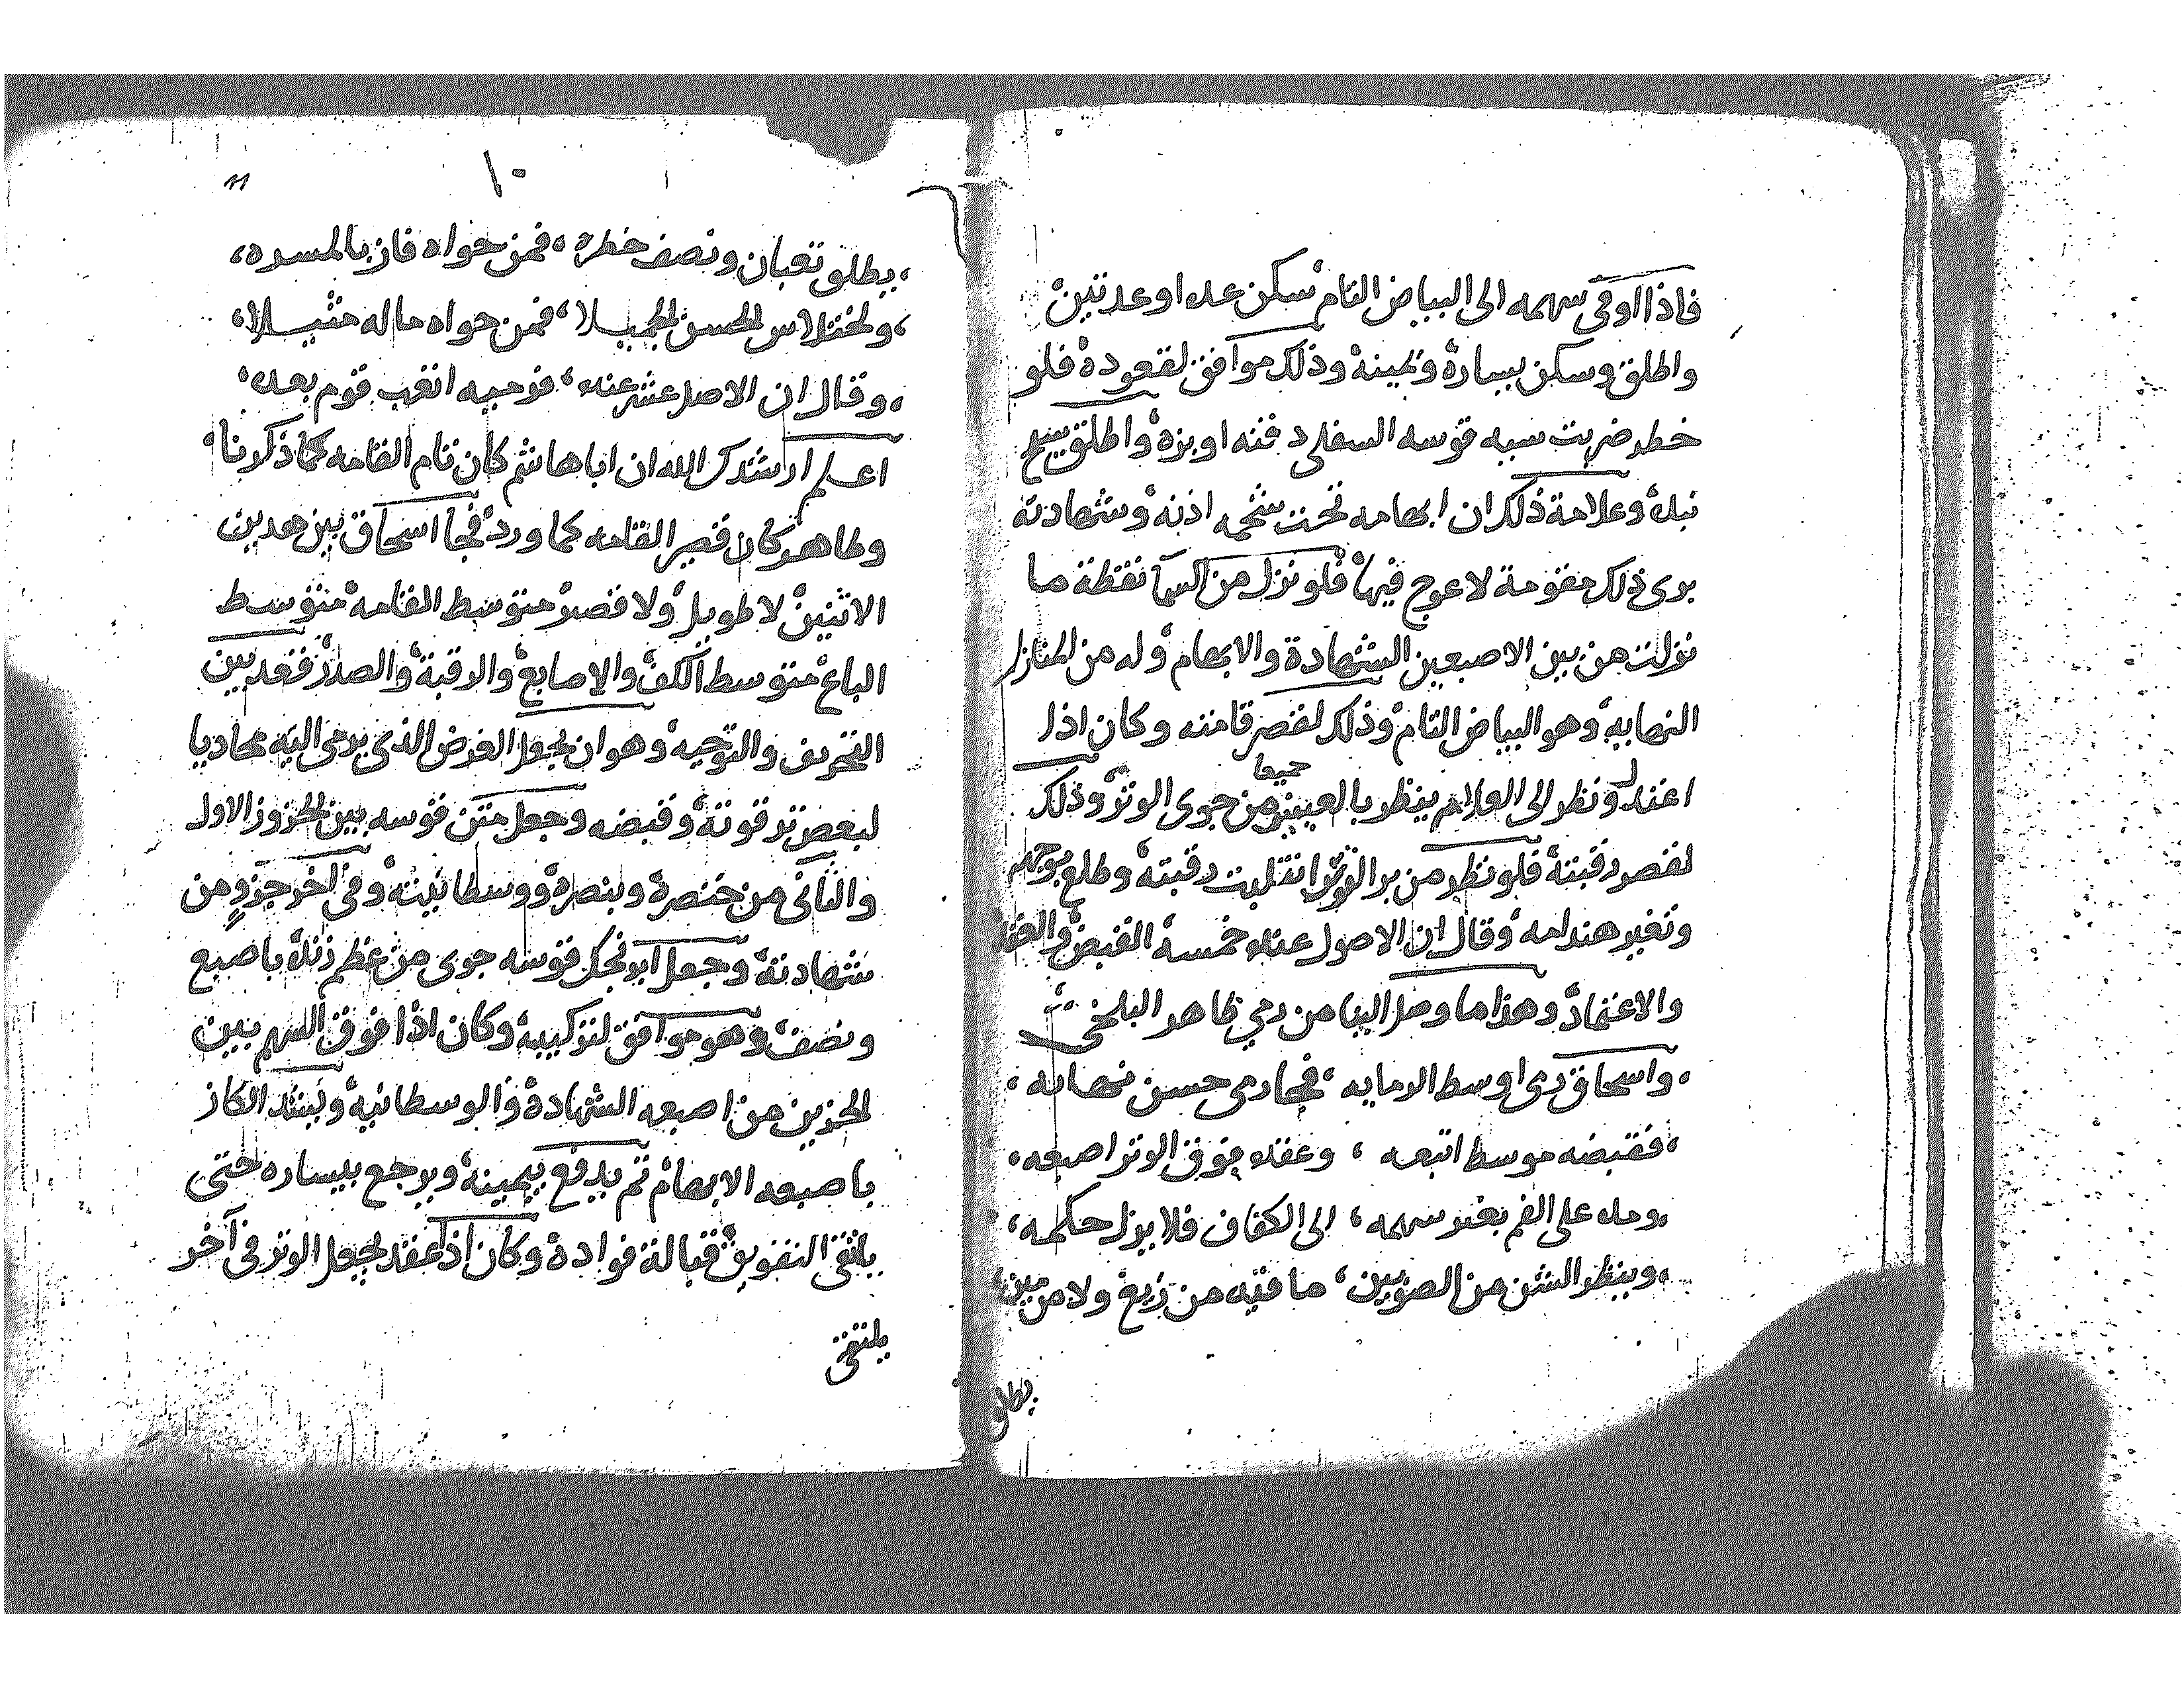 فاذا اوفى سهمه الى البياض التام سكن عده او عدتين
واطلق وسكن يساره ويمينه وذلك موافق لقعوده فلو
خطر ضربت سيه قوسه السفلى واطلق
نبله وعلامة ذلك ان ابهامه تحت شحمه اذنه وشهادته
يرى ذلك مقومة لا عوج فيها فلو نزل من السمآ نقطة ما
نزلت من بين الاصبعين الشهادة والابهام وله من المنازل
النهايه وهو البياض التام وذلك لقصر قامته وكان اذا
اعتدل ونظر الى العلام ينظر بالعينين جميعا من جوى الوتر وذلك
لقصر رقبته فلو نظر من برا الوتر انقلبت رقبته وطلع
وتغير هندامه وقال ان الاصول عنده خمسه القبض والعقد
والاعتماد وهذا ما وصل الينا من رمي طاهر البلخي
، واسحاق رمى اوسط الرمايه ، فجا رمى حسن نهايه ،
، فقبضه موسط اتبعه ، وعقده فوق الوتر اصبعه ،
، ومده على الفم بغير سهمه ، الى الكفاف فلا يزل حكمه ،
، وينظر الشن من الصوبين ، ما فيه من زيغ ولا من مين ،
يطلق
١٠
11
، يطلق ونصف خطره ، فمن حواه فاز بالمسره ،
، ولاختلاس الحسن الجميلا ، فمن حواه ماله مثيلا ،
، وقال ان الاصل عشر عنده ، قوم بعده ،
اعلم ارشدك الله ان ابا هاشم كان تام القامه كما ذكرنا
وطاهر كان قصير القامه كما ورد فجا اسحاق بين هدين
الاثنين لا طويل ولا قصر متوسط القامه متوسط
الباع متوسط الكف والاصابع والرقبة والصدر فقعد بين
التحريف والتوجيه وهو ان يجعل الغرض الذى يرمى اليه محاديا
لبعض ترقوته وقبضه وجعل متن قوسه بين الحزوز الاول
والثانى من خنصره وبنصره ووسطانيته وفى آخر حزو من
شهادته وجعل ابرنجك قوسه جوى من عظم زنده باصبع
ونصف وهو موافق لتركيبه وكان اذا فوق السهم بين
الحزين من اصبعه الشهادة والوسطانيه ويسند الكاز
باصبعه الابهام ثم يدفع بيمينه ويرجع بيساره حتى
يلتقى التفويق قبالة فواده وكان اذا عقد يجعل الوتر فى آخر
يلتقى